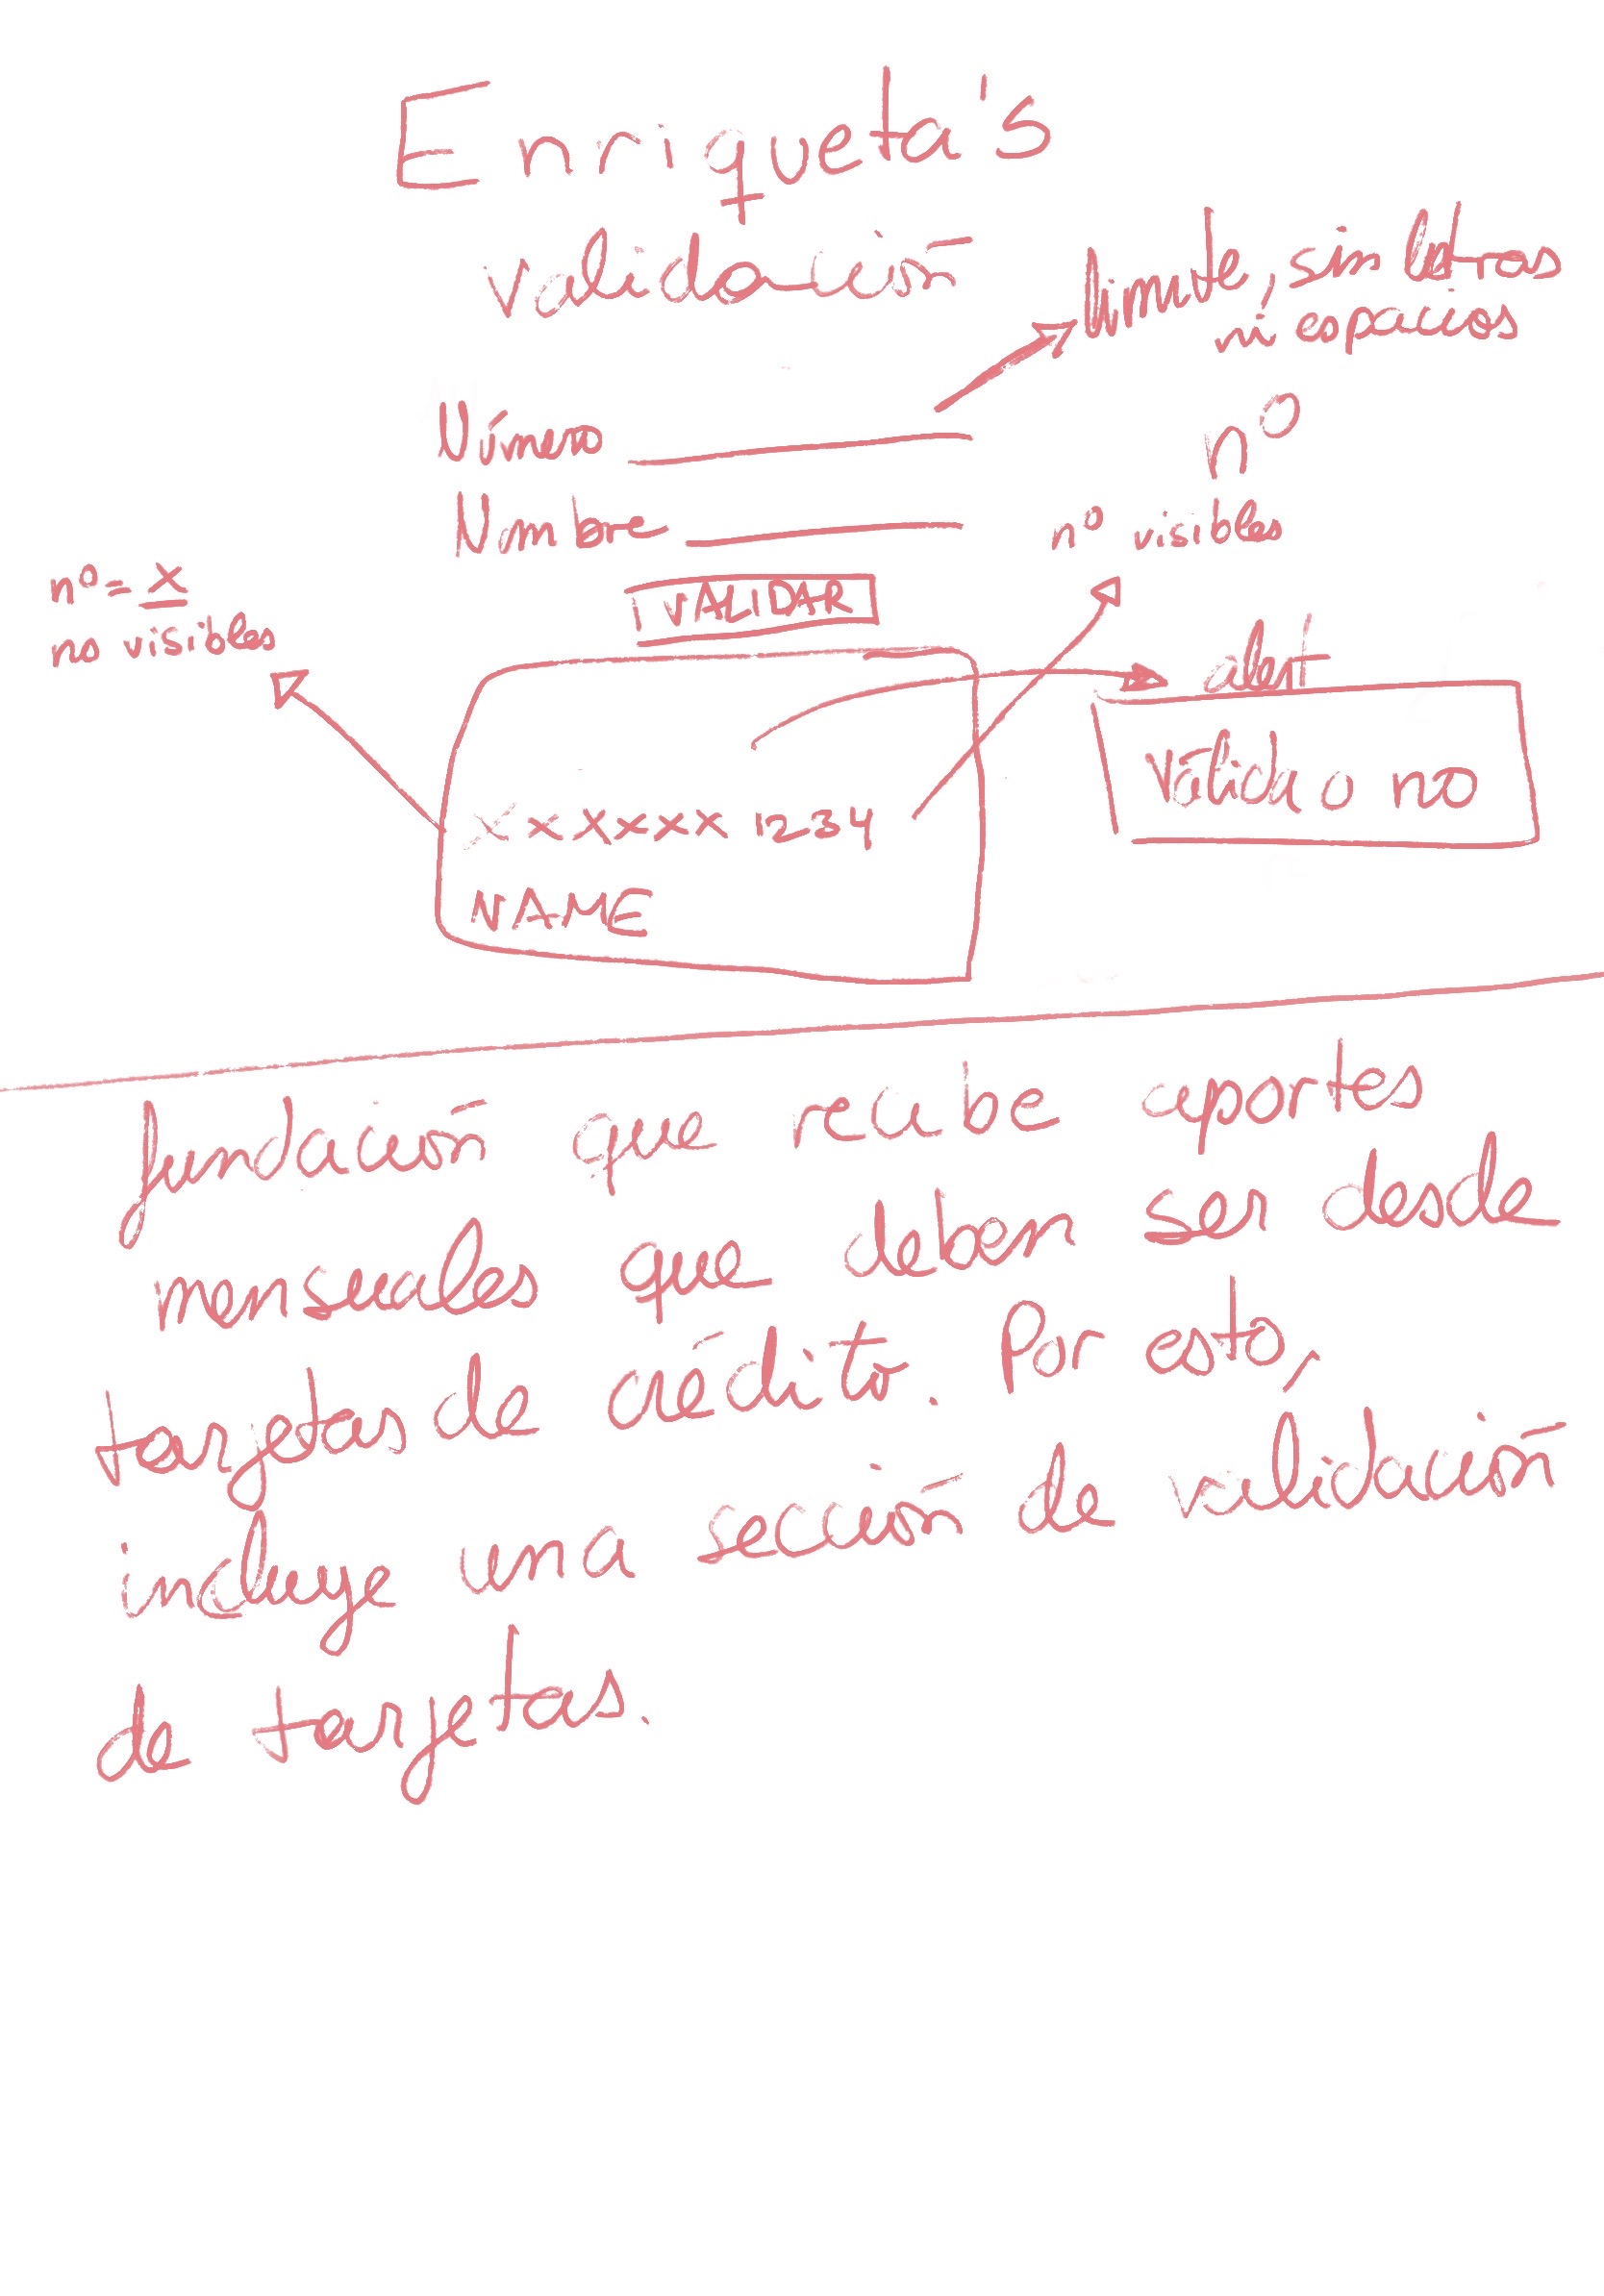 Enriqueta's
validación
límite, sin letras
ni espacios
Número
nº
Nombre
nº visibles
nº = x
no visibles
VALIDAR
alert
Válida o no
XXXXXXX 1234
NAME
fundación que recibe aportes
mensuales que deben ser desde
tarjetas de crédito. Por esto,
incluye una sección de validación
de tarjetas.